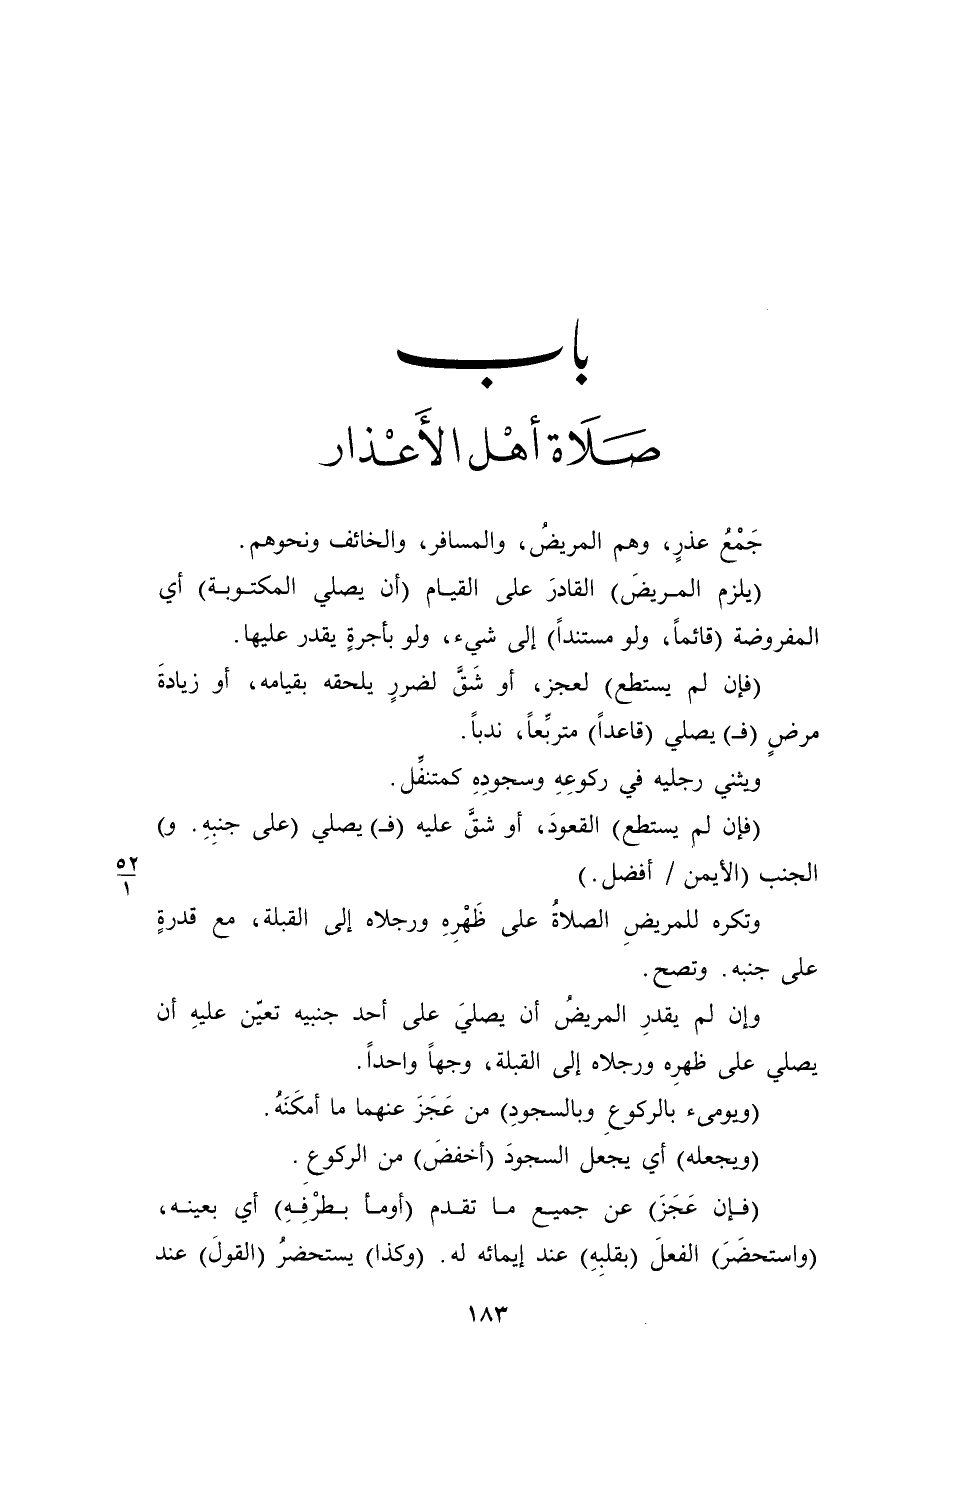 باب
صَلَاة أهْل الأَعْذار
جَمْعُ عذرٍ، وهم المريضُ، والمسافر، والخائف ونحوهم.
(يلزم المريضَ) القادرَ على القيام (أن يصلي المكتوبة) أي
المفروضة (قائماً، ولو مستنداً) إلى شيء، ولو بأجرةٍ يقدر عليها.
(فإن لم يستطع) لعجز، أو شَقَّ لضررٍ يلحقه بقيامه، أو زيادةَ
مرضٍ (فـ) يصلي (قاعداً) متربِّعاً، ندباً.
ويثني رجليه في ركوعِهِ وسجودِهِ كمتنفِّل.
(فإن لم يستطع) القعودَ، أو شقَّ عليه (فـ) يصلي (على جنبِهِ. و)
الجنب (الأيمن / أفضل.)
٥٢
١
وتكره للمريضِ الصلاةُ على ظَهْرِهِ ورجلاه إلى القبلة، مع قدرةٍ
على جنبه. وتصح.
وإن لم يقدرِ المريضُ أن يصليَ على أحد جنبيه تعيّن عليهِ أن
يصلي على ظهرِه ورجلاه إلى القبلة، وجهاً واحداً.
(ويومىء بالركوعِ وبالسجودِ) من عَجَزَ عنهما ما أمكَنَهُ.
(ويجعله) أي يجعل السجودَ (أخفضَ) من الركوعِ.
(فإن عَجَزَ) عن جميع ما تقدم (أومأ بطرْفِهِ) أي بعينه،
(واستحضَرَ) الفعلَ (بقلبِهِ) عند إيمائه له. (وكذا) يستحضرُ (القولَ) عند
١٨٣